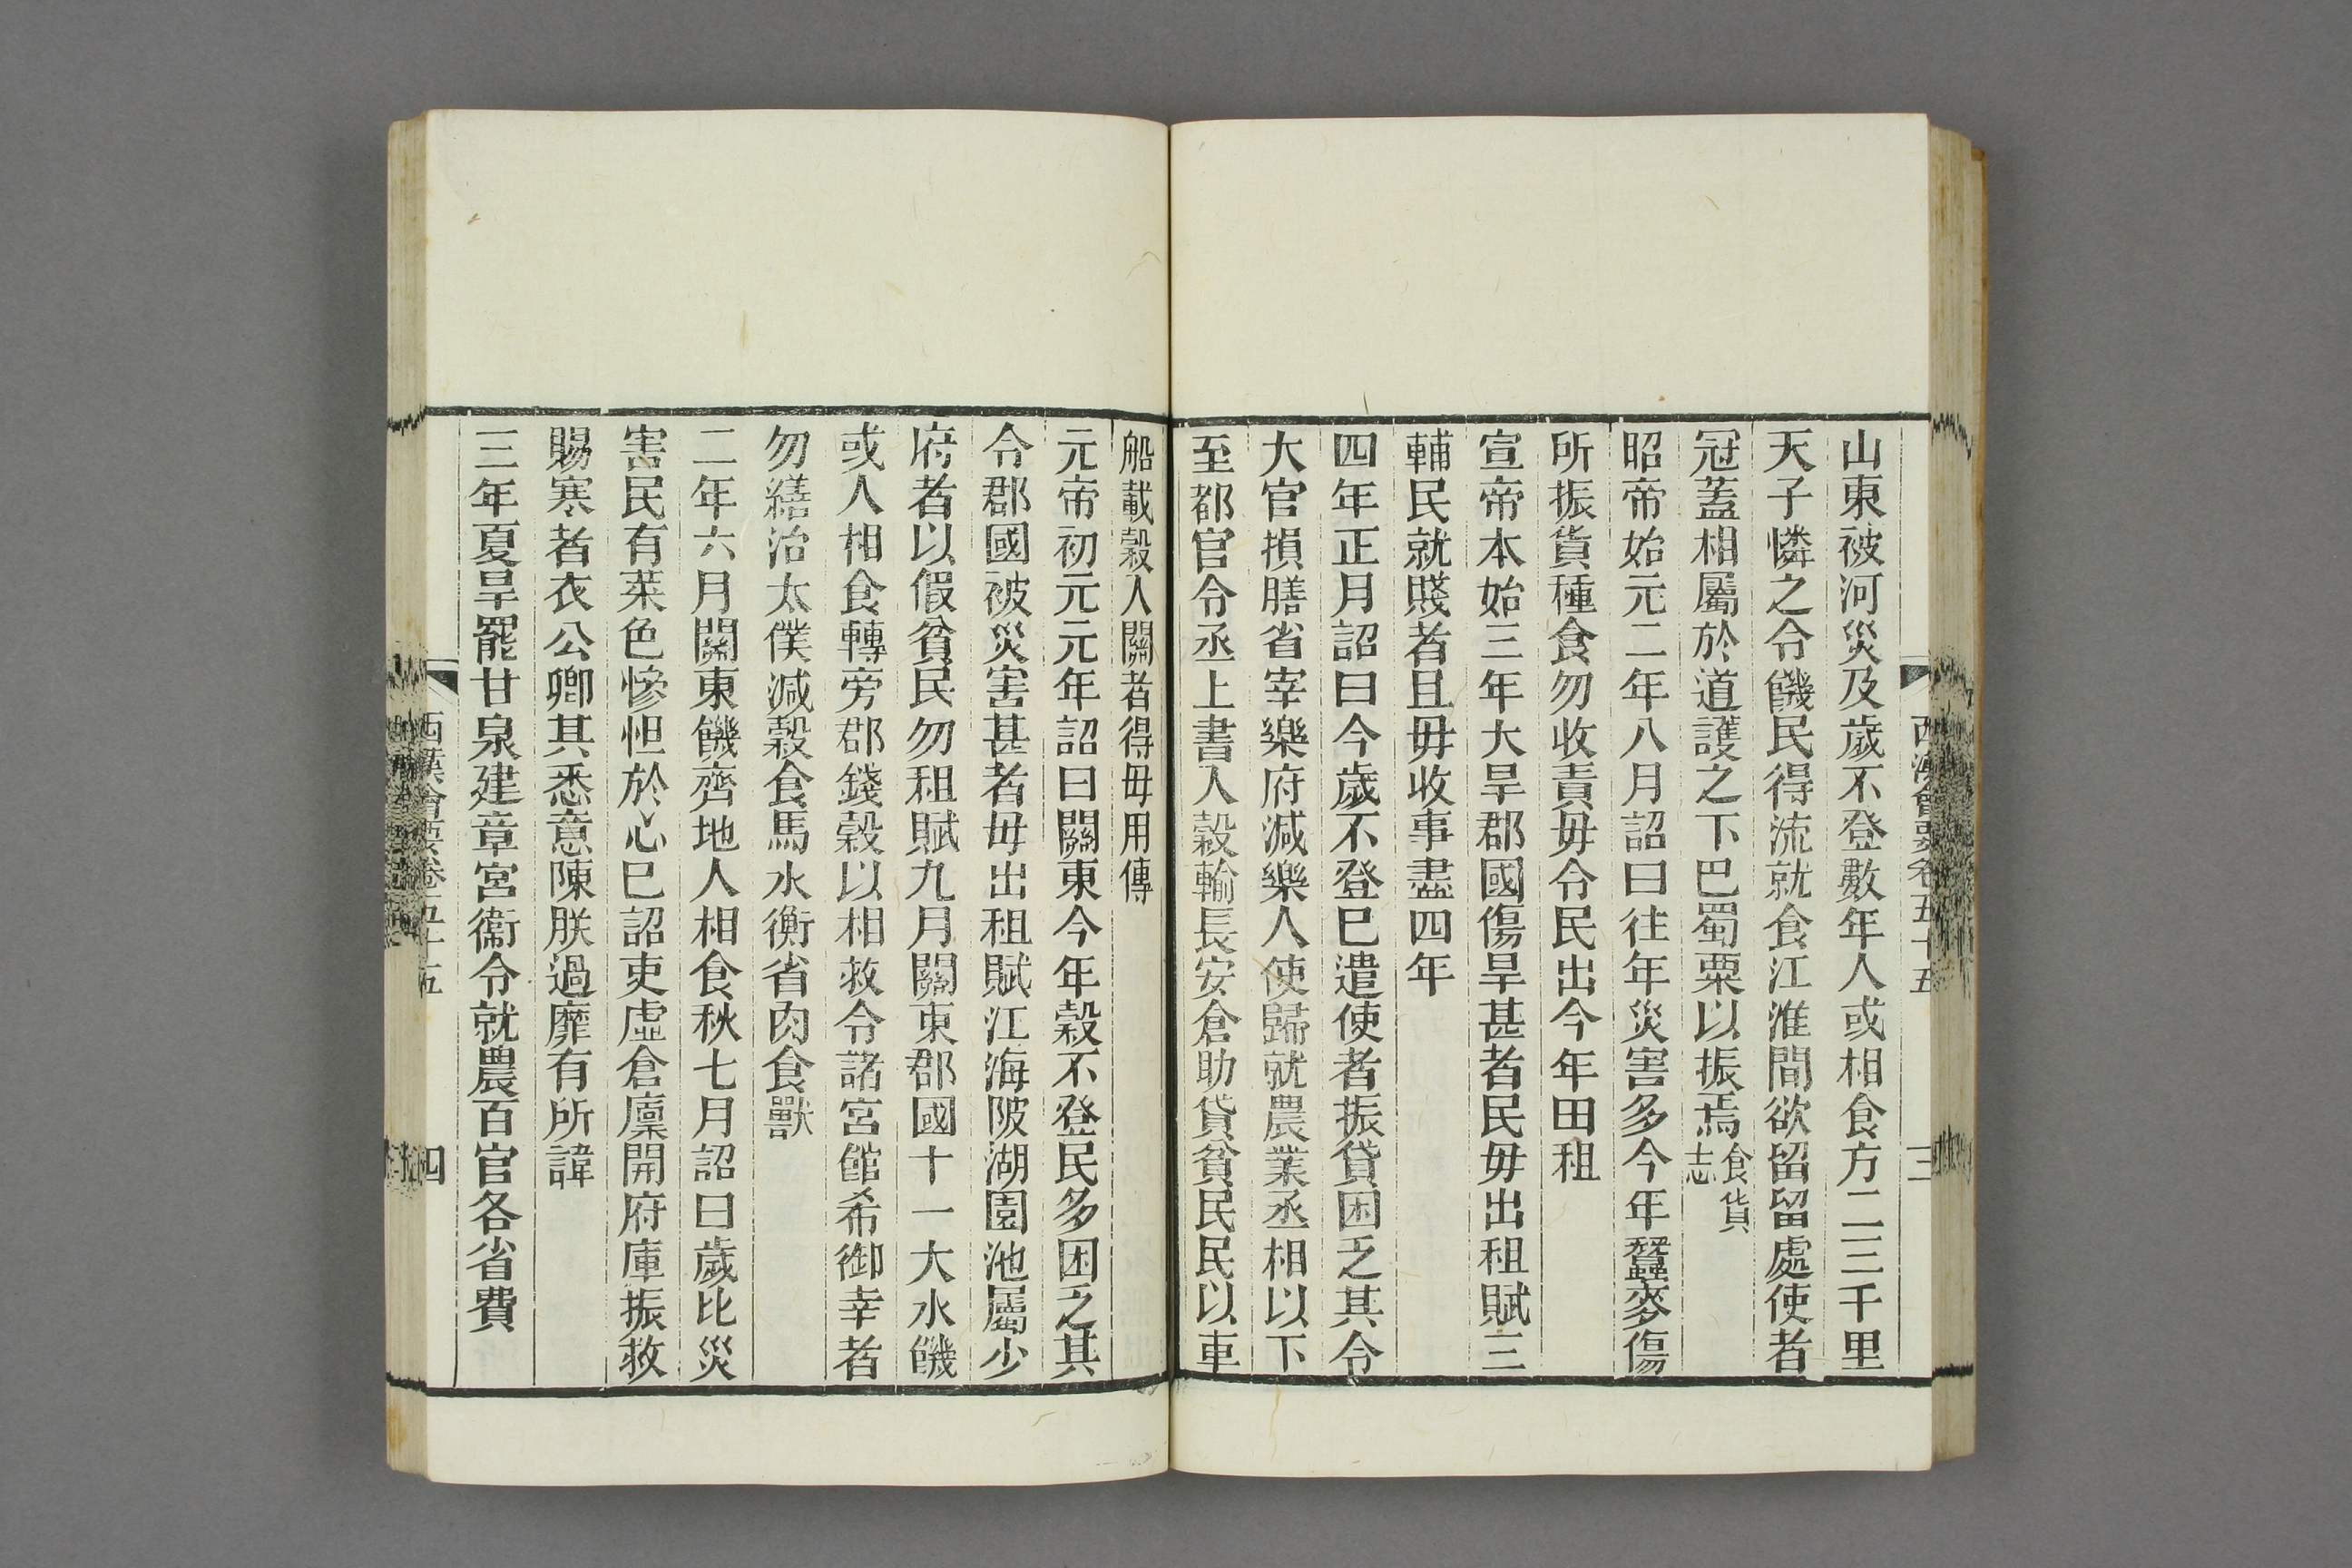 西漢會要卷五十五
三
山東被河災及歲不登數年人或相食方二三千里
天子憐之令饑民得流就食江淮間欲留留處使者
冠蓋相屬於道護之下巴蜀粟以振焉食貨志
昭帝始元二年八月詔曰往年災害多今年蠶麥傷
所振貨種食勿收責毋令民出今年田租
宣帝本始三年大旱郡國傷旱甚者民毋出租賦三
輔民就賤者且毋收事盡四年
四年正月詔曰今歲不登巳遣使者振貸困乏其令
大官損膳省宰樂府減樂人使歸就農業丞相以下
至都官令丞上書入穀輸長安倉助貸貧民民以車
船載穀入關者得毋用傳
元帝初元元年詔曰關東今年穀不登民多困乏其
令郡國被災害甚者毋出租賦江海陂湖園池屬少
府者以假貧民勿租賦九月關東郡國十一大水饑
或人相食轉旁郡錢穀以相救令諸宮館希御幸者
勿繕治太僕減穀食馬水衡省肉食獸
二年六月關東饑齊地人相食秋七月詔曰歲比災
害民有菜色慘怛於心巳詔吏虛倉廩開府庫振救
賜寒者衣公卿其悉意陳朕過靡有所諱
三年夏旱罷甘泉建章宮衞令就農百官各省費
西漢會要卷五十五
四